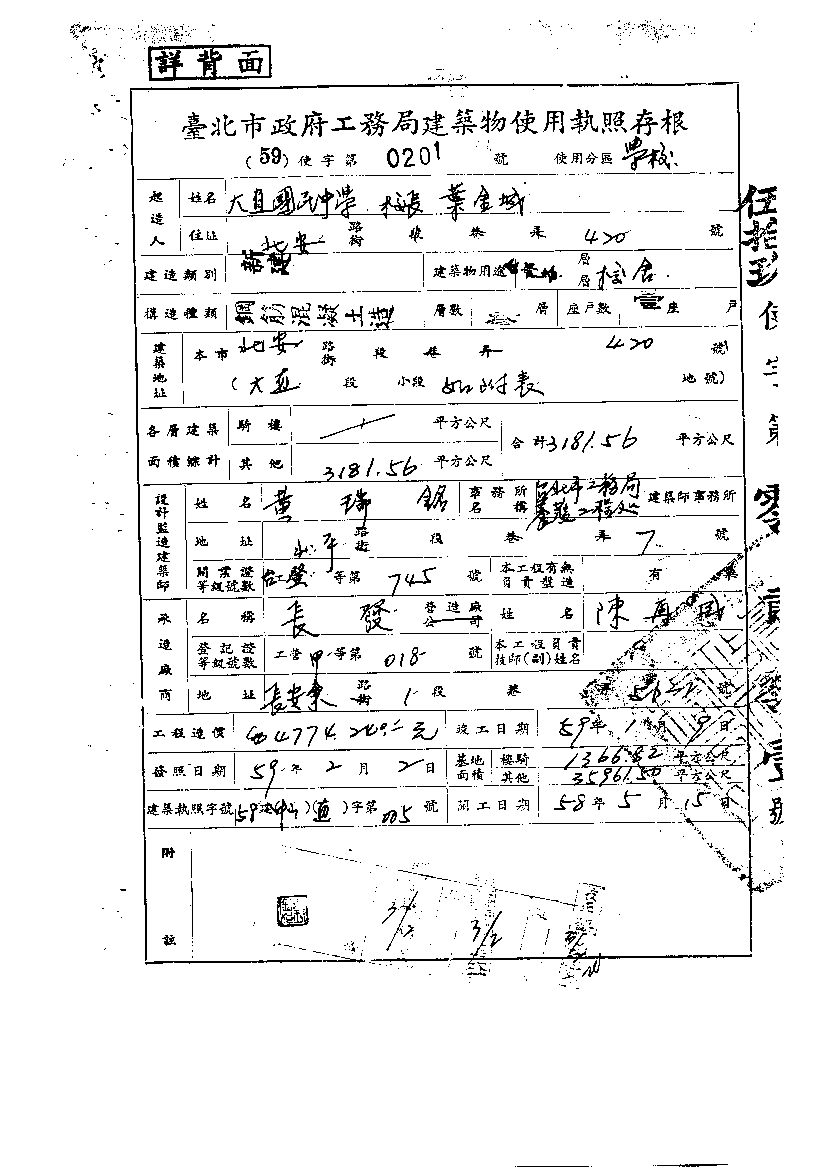 詳背面
臺北市政府工務局建築物使用執照存根
(59)使字第 0201 號 使用分區 學校
起造人 姓名 大直國民中學 校長 葉金城
住址 北安 路街 巷 弄 420 號
建造類別 新建 建築物用途 層層 校舍
構造種類 鋼筋混凝土造 層數 層 座戶數 壹座 戶
建築地址 本市 北安 路街 段 巷 弄 420 號
(大直 段 小段 如附表 地號)
各層建築面積總計 騎樓 平方公尺 合計 3181.56 平方公尺
其他 3181.56 平方公尺
設計監造建築師 姓名 黃瑞銘 事務所名稱 台北市工務局 建築師事務所
地址 北平 路街 段 巷 弄 7 號
開業證等級號數 等第 745 號 本工程有無負責監造 有 無
承造廠商 名稱 長發 營造廠公司 姓名 陳再
登記證等級號數 工營甲等第 018 號 本工程負責技師(副)姓名
地址 長安東 路街 1 段 巷 號
工程造價 元 竣工日期 59年1月9日
發照日期 59年2月2日 基地面積 樓騎 1366.82 平方公尺
其他 35961.50 平方公尺
建築執照字號 59建(中山)(直)字第 005 號 開工日期 58年5月15日
附註
3/2
伍拾玖使字第零貳零壹號